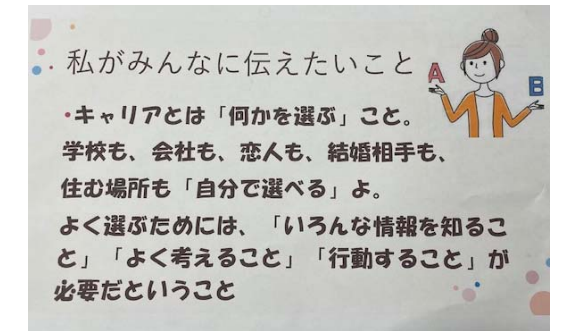 私がみんなに伝えたいこと
A
B
•キャリアとは「何かを選ぶ」こと。
学校も、会社も、恋人も、結婚相手も、
住む場所も「自分で選べる」よ。
よく選ぶためには、「いろんな情報を知るこ
と」「よく考えること」「行動すること」が
必要だということ